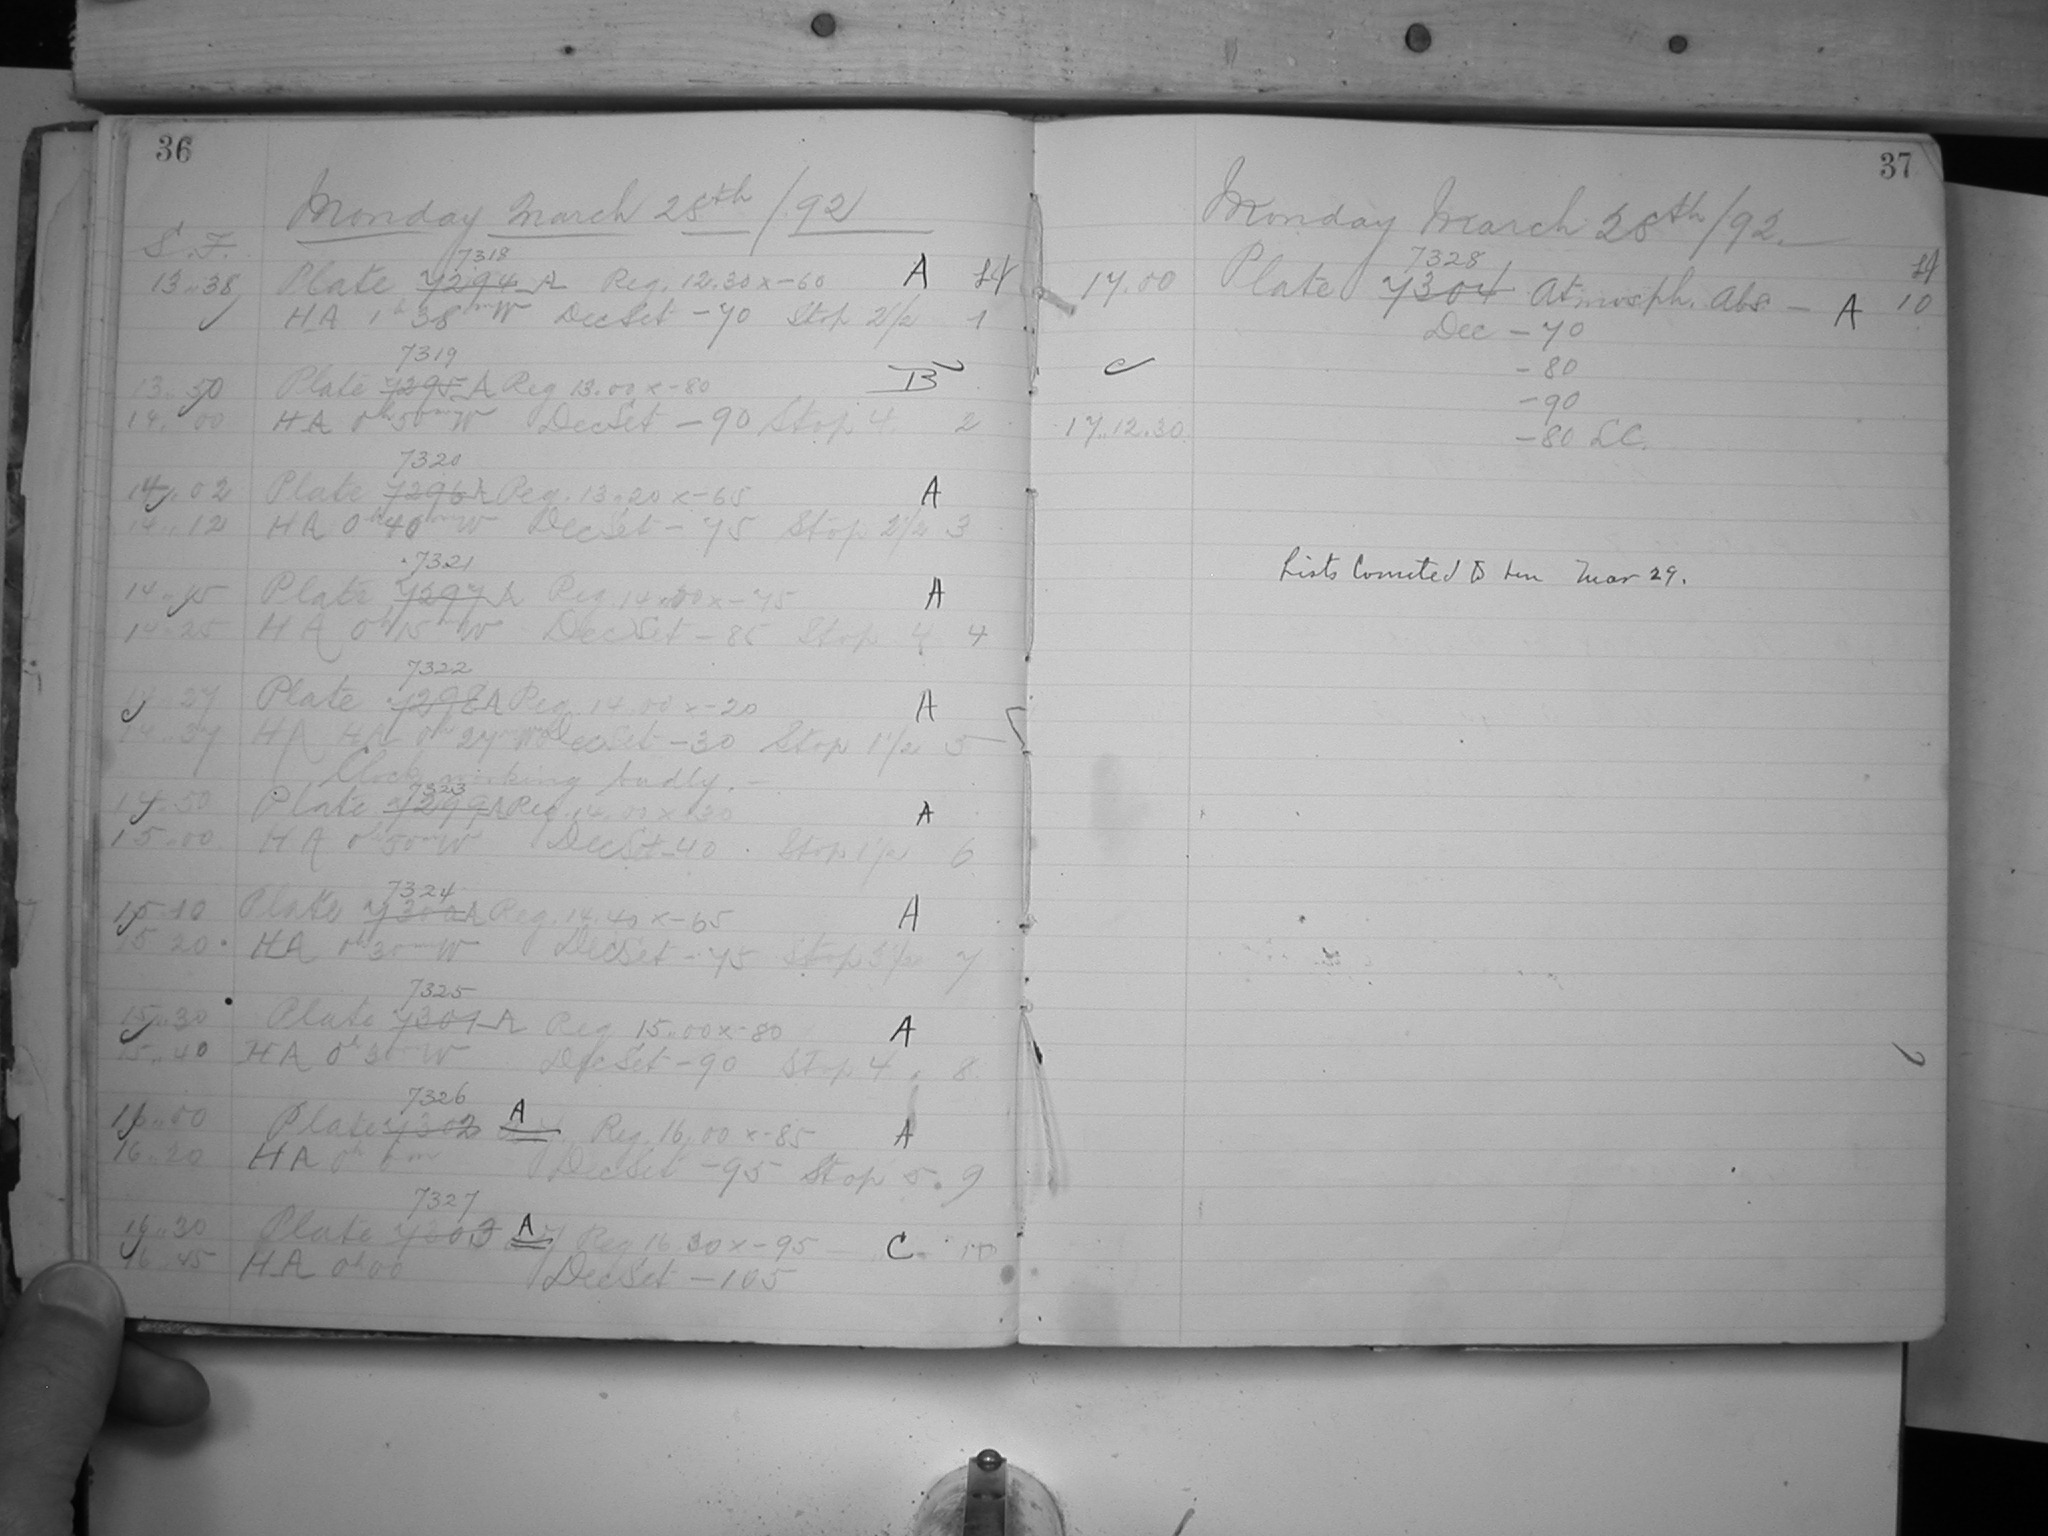 36
Monday March 28th /92
S.F.
7318
13..38 Plate 7294 A Reg. 12.30 x -60 A
HA 1h 38m W Dec Set -70 Stop 2 1/2 1
7319
13..50 Plate 7295 A Reg 13.00 x -80 B
14..00 HA 0h 50m W Dec Set -90 Stop 4. 2
7320
14..02 Plate 7296 A Reg. 13..20 x -65 A
14..12 HA 0h 40m W Dec Set -75 Stop 2 1/2 3
7321
14..15 Plate 7297 A Reg. 14..00 x -75 A
14..25 HA 0h 15m W Dec Set -85 Stop 4 4
7322
14..27 Plate 7298 A Reg. 14.00 x -20 A
14..37 HA HA 0h 27m W Dec Set -30 Stop 1 1/2 5
Clock working badly. -
7323
14..50 Plate 7299 A Reg. 14.00 x -30 A
15..00 HA 0h 50m W Dec Set -40 Stop 1 1/2 6
7324
15..10 Plate 7300 A Reg. 14.40 x -65 A
15..20 HA 0h 30m W Dec Set -75 Stop 3 1/2 7
7325
15..30 Plate 7301 A Reg 15..00 x -80 A
15..40 HA 0h 30m W Dec Set -90 Stop 4. 8.
7326
16..00 Plate 7302 A Reg. 16.00 x -85 A
16..20 HA 0h 0m Dec Set -95 Stop 5. 9
7327
16..30 Plate 7303 A Reg 16 30 x -95 C
16..45 HA 0h 00 Dec Set -105
37
Monday March 28th /92.
7328
17.00 Plate 7304 Atmosph. Abs - A 10
Dec -70
-80
-90
17..12.30 -80 LC.
Lists Mar 29.